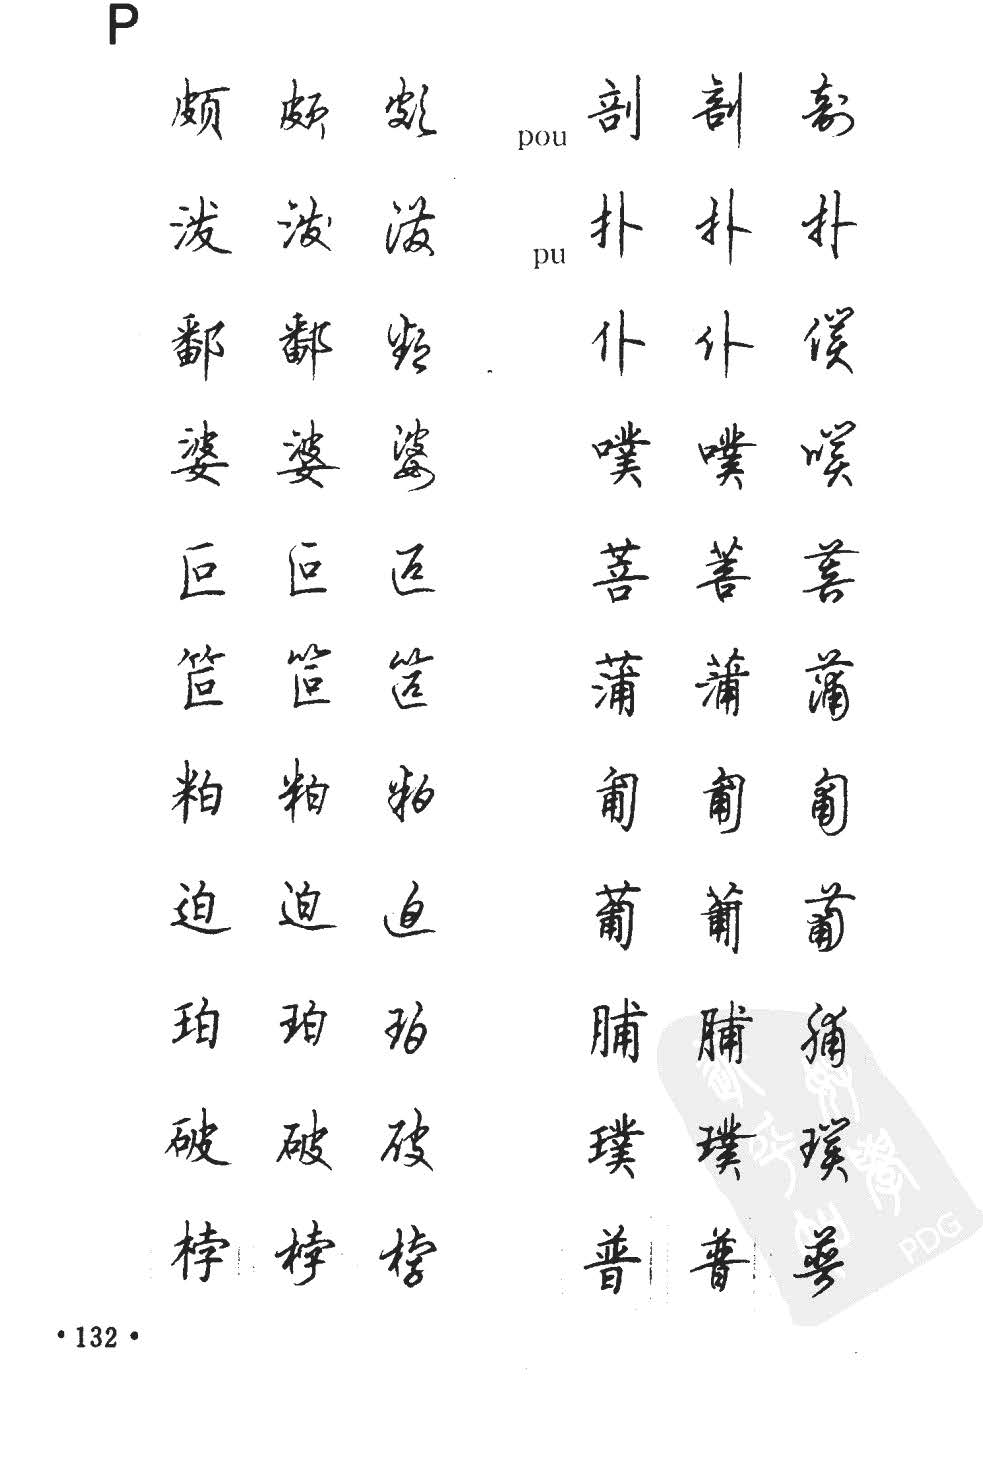 P
颇 颇 颇
泼 泼 泼
鄱 鄱 鄱
婆 婆 婆
叵 叵 叵
笸 笸 笸
粕 粕 粕
迫 迫 迫
珀 珀 珀
破 破 破
桲 桲 桲
pou 剖 剖 剖
pu 扑 扑 扑
仆 仆 僕
噗 噗 噗
菩 菩 菩
蒲 蒲 蒲
匍 匍 匍
葡 葡 葡
脯 脯 脯
璞 璞 璞
普 普 普
·132·
PDG